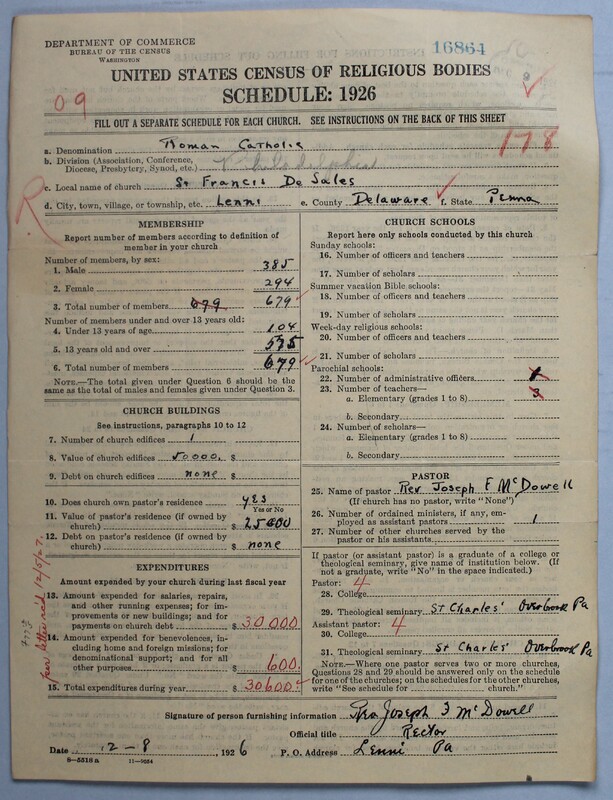 DEPARTMENT OF COMMERCE
BUREAU OF THE CENSUS
WASHINGTON
16864
UNITED STATES CENSUS OF RELIGIOUS BODIES
SCHEDULE: 1926
09
FILL OUT A SEPARATE SCHEDULE FOR EACH CHURCH. SEE INSTRUCTIONS ON THE BACK OF THIS SHEET
178
a. Denomination Roman Catholic
b. Division (Association, Conference, Diocese, Presbytery, Synod, etc.) Philadelphia
c. Local name of church St Francis De Sales
d. City, town, village, or township, etc. Lenni e. County Delaware f. State Penna
R
MEMBERSHIP
Report number of members according to definition of member in your church
Number of members, by sex:
1. Male 385
2. Female 294
3. Total number of members 679 679
Number of members under and over 13 years old:
4. Under 13 years of age 104
5. 13 years old and over 575
6. Total number of members 679
NOTE.—The total given under Question 6 should be the same as the total of males and females given under Question 3.
CHURCH BUILDINGS
See instructions, paragraphs 10 to 12
7. Number of church edifices 1
8. Value of church edifices 50000. $
9. Debt on church edifices none $
10. Does church own pastor's residence yes
Yes or No
11. Value of pastor's residence (if owned by church) $ 25000
12. Debt on pastor's residence (if owned by church) $ none
EXPENDITURES
Amount expended by your church during last fiscal year
13. Amount expended for salaries, repairs, and other running expenses; for improvements or new buildings; and for payments on church debt $ 30000.
14. Amount expended for benevolences, including home and foreign missions; for denominational support; and for all other purposes $ 600.
15. Total expenditures during year $ 30600.
12/5/27.
CHURCH SCHOOLS
Report here only schools conducted by this church
Sunday schools:
16. Number of officers and teachers
17. Number of scholars
Summer vacation Bible schools:
18. Number of officers and teachers
19. Number of scholars
Week-day religious schools:
20. Number of officers and teachers
21. Number of scholars
Parochial schools:
22. Number of administrative officers 1
23. Number of teachers—
a. Elementary (grades 1 to 8) 3
b. Secondary
24. Number of scholars—
a. Elementary (grades 1 to 8)
b. Secondary
PASTOR
25. Name of pastor Rev Joseph F McDowell
(If church has no pastor, write "None")
26. Number of ordained ministers, if any, employed as assistant pastors 1
27. Number of other churches served by the pastor or his assistants
If pastor (or assistant pastor) is a graduate of a college or theological seminary, give name of institution below. (If not a graduate, write "No" in the space indicated.)
Pastor: 4
28. College
29. Theological seminary St Charles' Overbrook Pa
Assistant pastor: 4
30. College
31. Theological seminary St Charles' Overbrook Pa
NOTE.—Where one pastor serves two or more churches, Questions 28 and 29 should be answered only on the schedule for one of the churches; on the schedules for the other churches, write "See schedule for church."
Signature of person furnishing information Rev Joseph F McDowell
Official title Rector
Date 12-8, 1926 P. O. Address Lenni Pa
8—5518a 11—9264